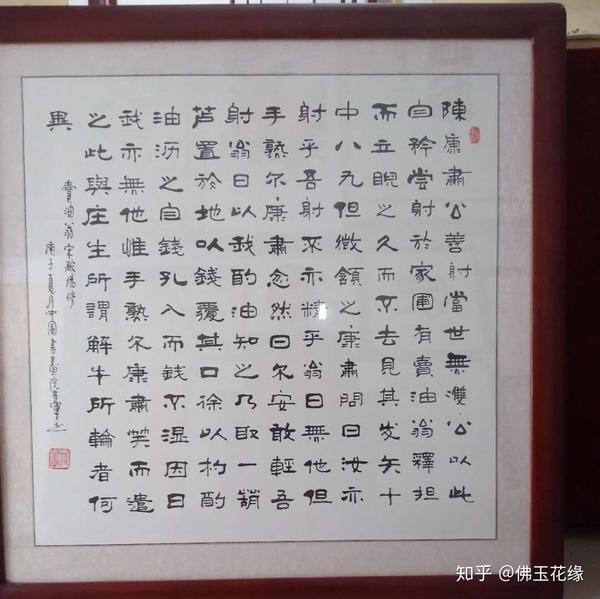 陳康肅公善射當世無雙公以此
自矜嘗射於家圃有賣油翁釋担
而立睨之久而不去見其发矢十
中八九但微頷之康肅問曰汝亦
射乎吾射不亦精乎翁曰無他但
手熟尔康肅忿然曰尔安敢輕吾
射翁曰以我酌油知之乃取一葫
芦置於地以錢覆其口徐以杓酌
油沥之自錢孔入而錢不湿因曰
我亦無他惟手熟尔康肅笑而遣
之此與庄生所謂解牛所輪者何
異
賣油翁宋歐陽修
庚子夏月中國書畫院
知乎 @佛玉花缘